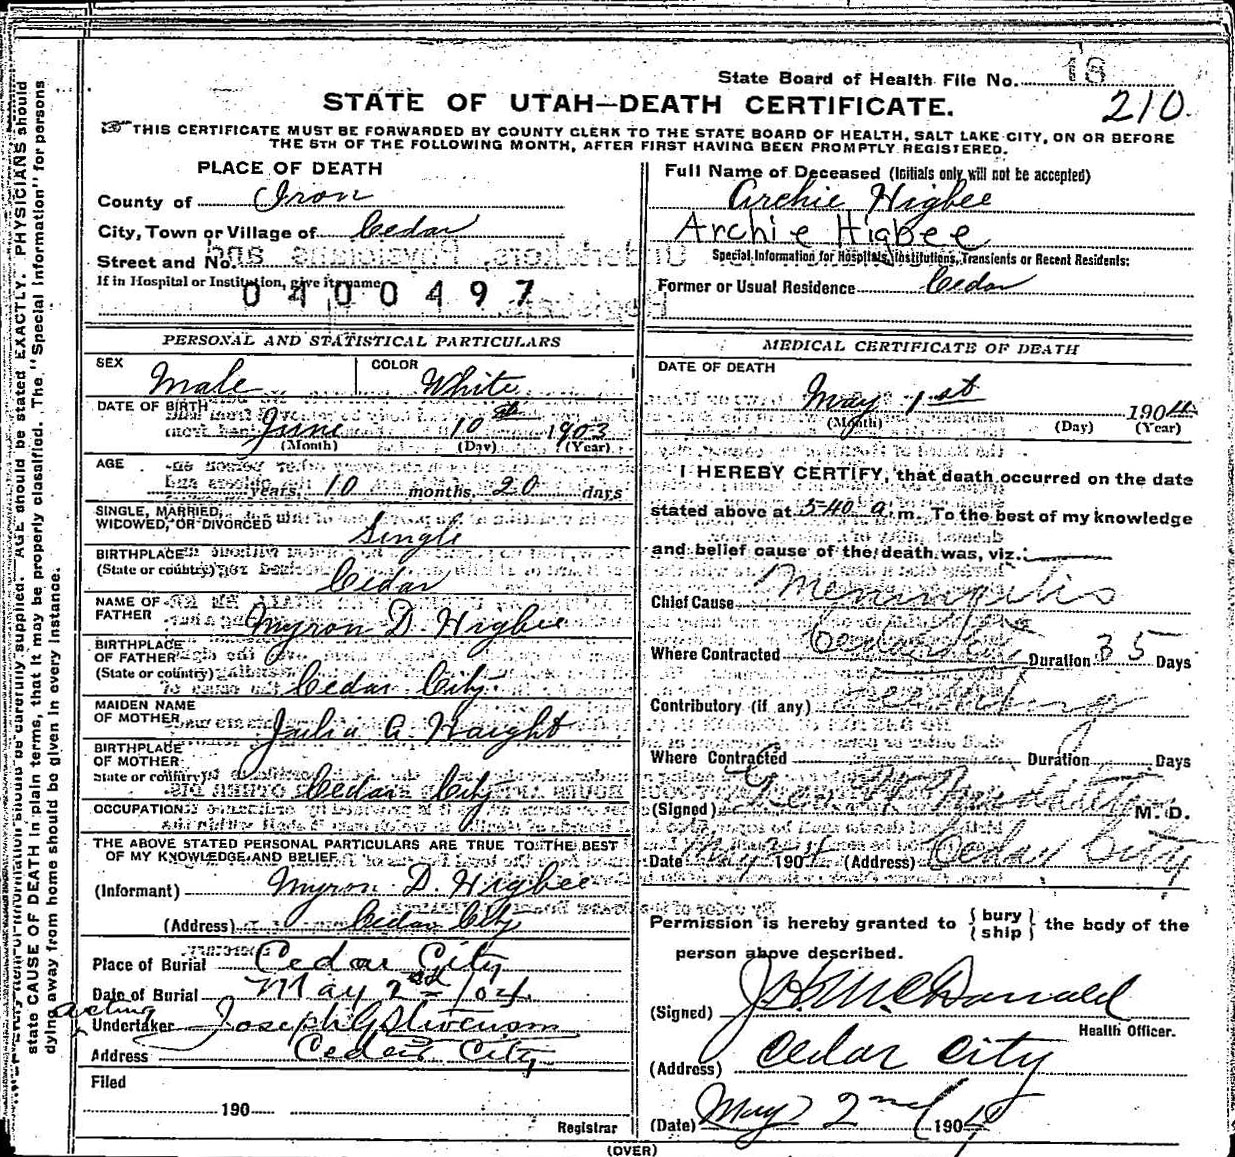 State Board of Health File No. 18
210.
STATE OF UTAH—DEATH CERTIFICATE.
THIS CERTIFICATE MUST BE FORWARDED BY COUNTY CLERK TO THE STATE BOARD OF HEALTH, SALT LAKE CITY, ON OR BEFORE
THE 5TH OF THE FOLLOWING MONTH, AFTER FIRST HAVING BEEN PROMPTLY REGISTERED.
PLACE OF DEATH
County of Iron
City, Town or Village of Cedar
Street and No.
If in Hospital or Institution, give its name
0400497
Full Name of Deceased (Initials only will not be accepted)
Archie Higbee
Archie Higbee
Special Information for Hospitals, Institutions, Transients or Recent Residents:
Former or Usual Residence Cedar
PERSONAL AND STATISTICAL PARTICULARS
SEX Male COLOR White
DATE OF BIRTH June 10th 1903
(Month) (Day) (Year)
AGE
years, 10 months, 20 days
SINGLE, MARRIED,
WIDOWED, OR DIVORCED Single
BIRTHPLACE
(State or country) Cedar
NAME OF
FATHER Myron D. Higbee
BIRTHPLACE
OF FATHER
(State or country) Cedar City.
MAIDEN NAME
OF MOTHER Julia A. Haight
BIRTHPLACE
OF MOTHER
State or country) Cedar City
OCCUPATION
THE ABOVE STATED PERSONAL PARTICULARS ARE TRUE TO THE BEST
OF MY KNOWLEDGE AND BELIEF
(Informant) Myron D. Higbee
(Address) Cedar City
Place of Burial Cedar City
Date of Burial May 2nd /04.
acting
Undertaker Joseph G Stevenson
Address Cedar City
Filed
190
Registrar
MEDICAL CERTIFICATE OF DEATH
DATE OF DEATH
May 1st 1904
(Month) (Day) (Year)
I HEREBY CERTIFY, that death occurred on the date
stated above at 540 a.m. To the best of my knowledge
and belief cause of the death was, viz.:
Chief Cause Meningitis
Where Contracted Cedar City Duration 35 Days
Contributory (if any) Teething
Where Contracted Duration Days
(Signed) Geo. W. M. D.
Date May 1904 (Address) Cedar City
Permission is hereby granted to { bury
ship } the body of the
person above described.
(Signed) McDonald
Health Officer.
(Address) Cedar City
(Date) May 2nd 1904
(OVER)
supplied. AGE should be stated EXACTLY. PHYSICIANS should
state CAUSE OF DEATH in plain terms, that it may be properly classified. The "Special Information" for persons
dying away from home should be given in every instance.